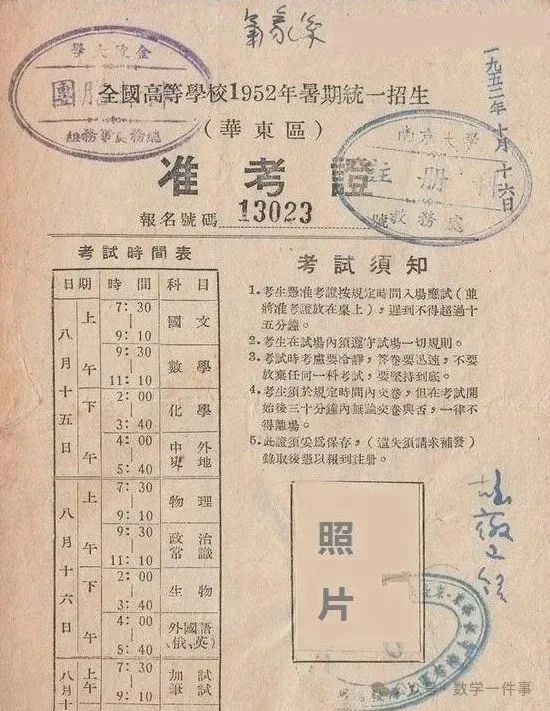 氣象系
金陵大學
團
總務處事務組
全國高等學校1952年暑期統一招生
(華東區)
准考證
報名號碼 13023 號
一九五二年十月十六日
南京大學
註冊
教務處
考試時間表
日期 時間 科目
八月十五日
上午
7:30 | 9:10 國文
9:30 | 11:10 數學
下午
2:00 | 3:40 化學
4:00 | 5:40 中外史地
八月十六日
上午
7:30 | 9:10 物理
9:30 | 11:10 政治常識
下午
2:00 | 3:40 生物
4:00 | 5:40 外國語(俄、英)
八月十
上午
7:30 | 9:10 加試筆試
考試須知
1.考生憑准考證按規定時間入場應試(並
將准考證放在桌上),遲到不得超過十
五分鐘。
2.考生在試場內須遵守試場一切規則。
3.考試時考慮要冷靜,答卷要迅速,不要
放棄任何一科考試,要堅持到底。
4.考生須於規定時間內交卷,但在考試開
始後三十分鐘內無論交卷與否,一律不
得離場。
5.此證須妥爲保存,(遺失須請求補發)
錄取後憑以報到註冊。
照
片
公众号·数学一件事